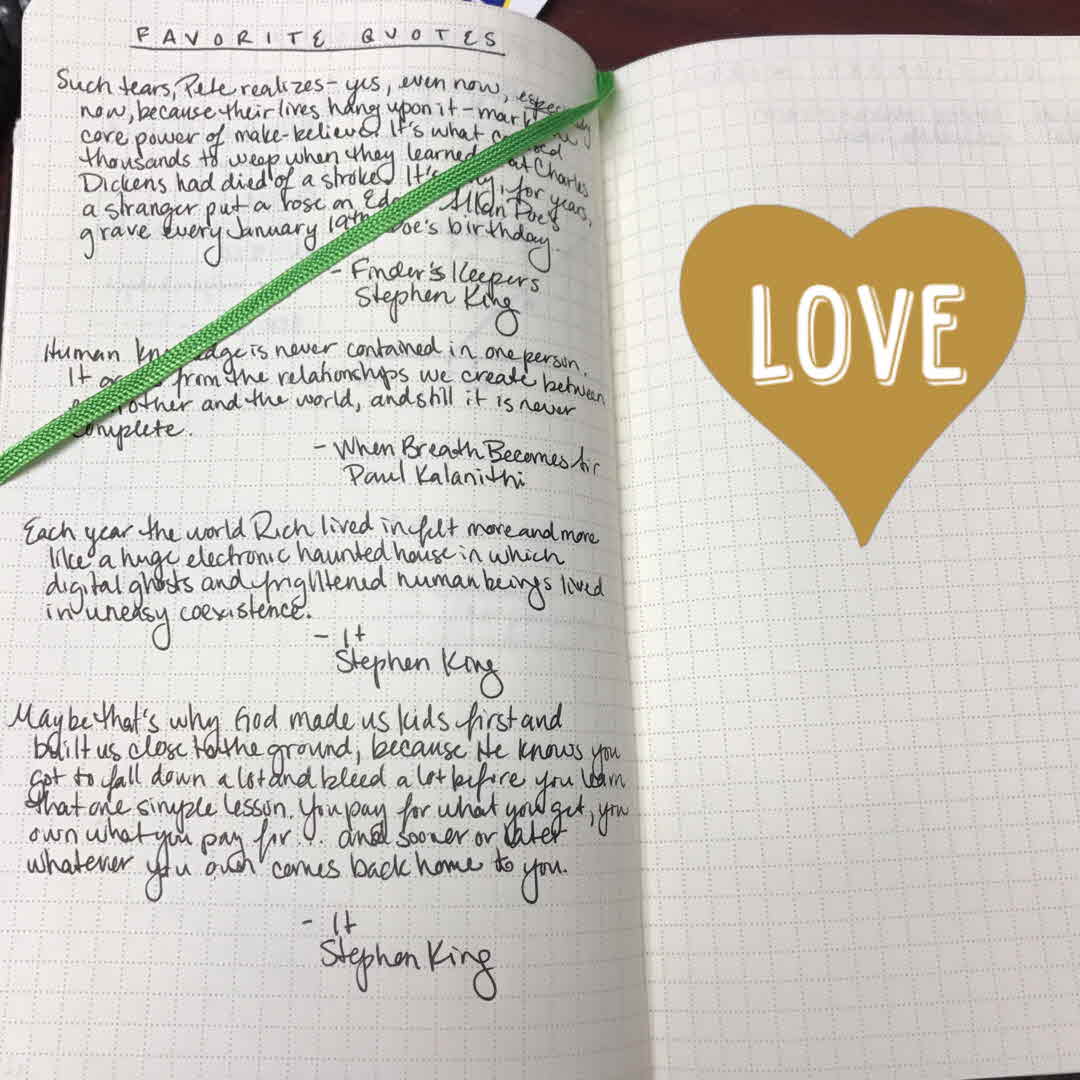 FAVORITE QUOTES
Such tears, Pete realizes - yes, even now, especially
now, because their lives hang upon it - mark
core power of make-believe. It's what
thousands to weep when they learned Charles
Dickens had died of a stroke. It's , for years,
a stranger put a rose on Allan Poe's
grave every January 19th, Poe's birthday.
- Finder's Keepers
Stephen King
Human is never contained in one person.
It from the relationships we create between
and the world, and still it is never
complete.
- When Breath Becomes Air
Paul Kalanithi
Each year the world Rich lived in felt more and more
like a huge electronic haunted house in which
digital ghosts and frightened human beings lived
in uneasy coexistence.
- It
Stephen King
Maybe that's why God made us kids first and
built us close to the ground, because He knows you
got to fall down a lot and bleed a lot before you learn
that one simple lesson. You pay for what you get, you
own what you pay for... and sooner or later
whatever you own comes back home to you.
- It
Stephen King
LOVE